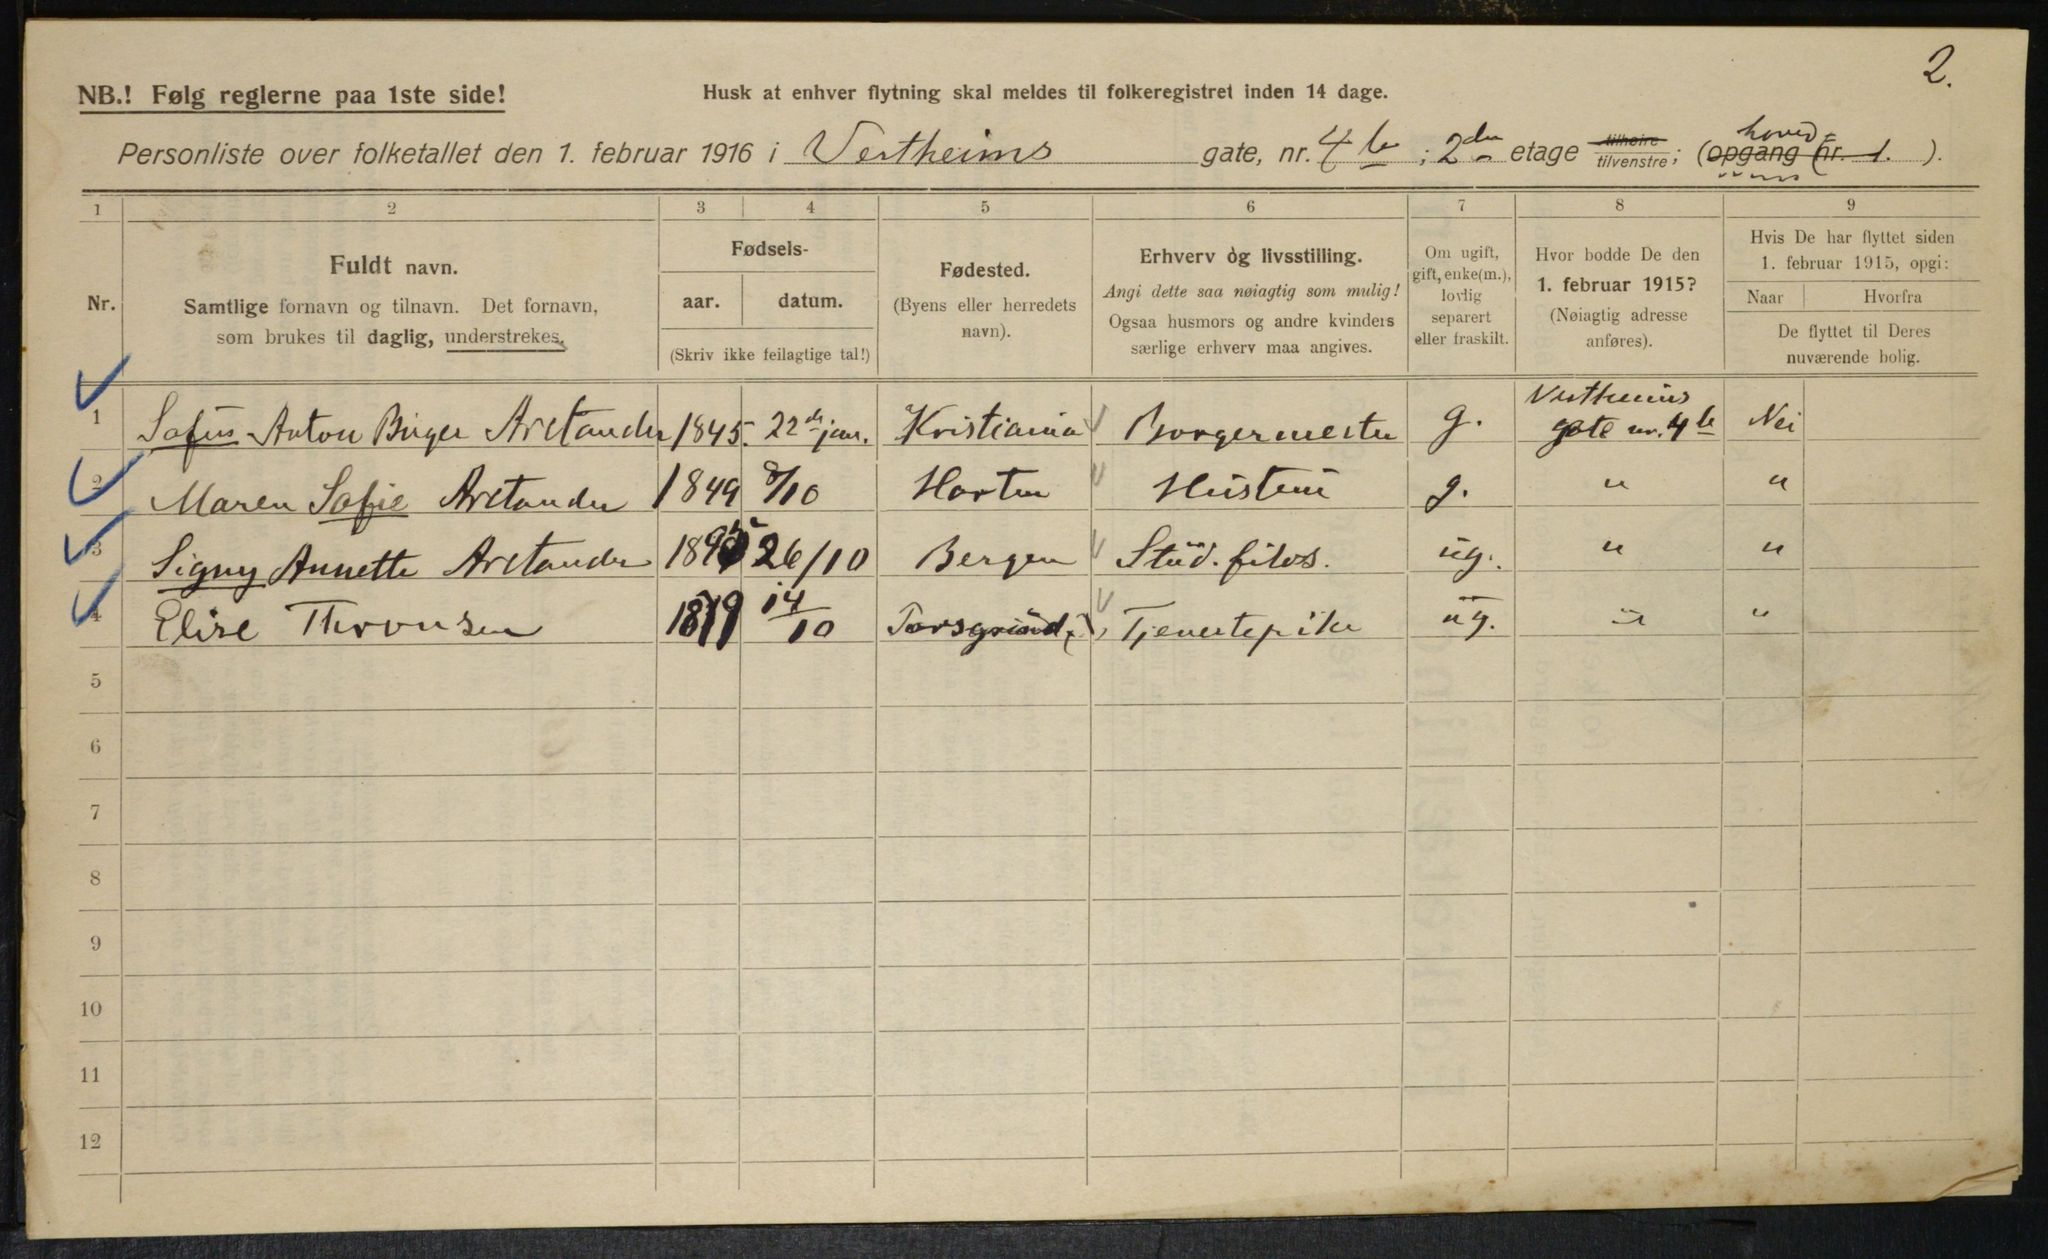 2.
NB.! Følg reglerne paa 1ste side!
Husk at enhver flytning skal meldes til folkeregistret inden 14 dage.
Personliste over folketallet den 1. februar 1916 i Vestheims gate, nr. 4 b ; 2den etage tilhøire tilvenstre; (opgang nr. 1. ).
hoved
1 2 3 4 5 6 7 8 9
Nr.
Fuldt navn.
Samtlige fornavn og tilnavn. Det fornavn,
som brukes til daglig, understrekes.
Fødsels-
aar. datum.
(Skriv ikke feilagtige tal!)
Fødested.
(Byens eller herredets
navn).
Erhverv og livsstilling.
Angi dette saa nøiagtig som mulig!
Ogsaa husmors og andre kvinders
særlige erhverv maa angives.
Om ugift,
gift, enke(m.),
lovlig
separert
eller fraskilt.
Hvor bodde De den
1. februar 1915?
(Nøiagtig adresse
anføres).
Hvis De har flyttet siden
1. februar 1915, opgi:
Naar Hvorfra
De flyttet til Deres
nuværende bolig.
1 Sofus Anton Birger Arctander 1845. 22de jan. Kristiania Borgermester g. Vestheims gate nr. 4 b Nei
2 Maren Sofie Arctander 1849 8/10 Horten Hustru g. " "
3 Signy Annette Arctander 1895 26/10 Bergen Stud. filos. ug. " "
4 Elise Thronsen 1879 14/10 Porsgrund, Tjenestepike ug. " "
5
6
7
8
9
10
11
12